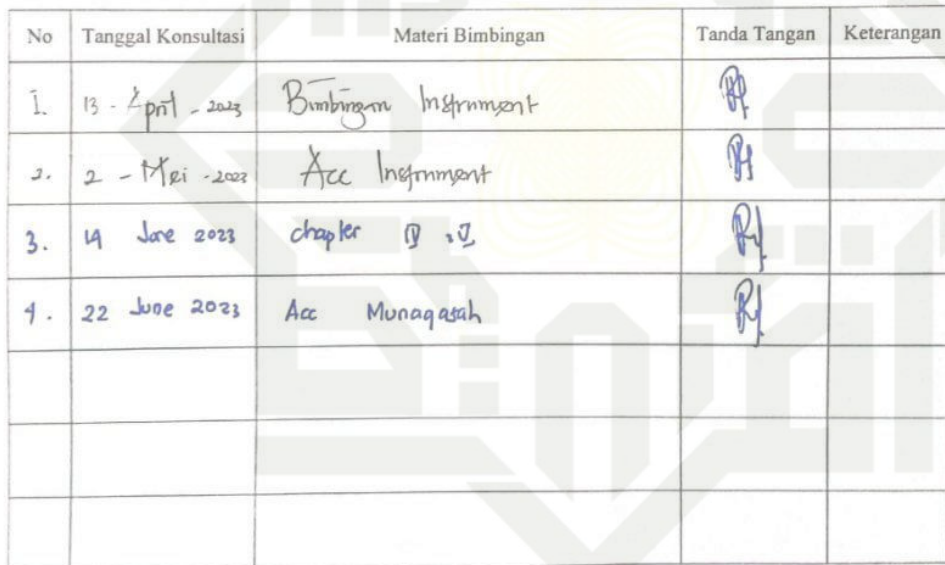 No Tanggal Konsultasi Materi Bimbingan Tanda Tangan Keterangan
1. 13 - April - 2023 Bimbingan Instrument
2. 2 - Mei - 2023 Acc Instrument
3. 14 June 2023 chapter IV, V
4. 22 June 2023 Acc Munaqasah